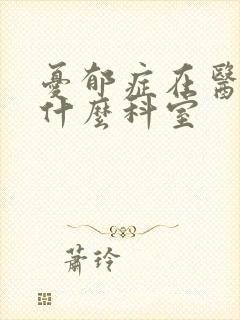 憂郁症在醫
什麼科室
蕭玲